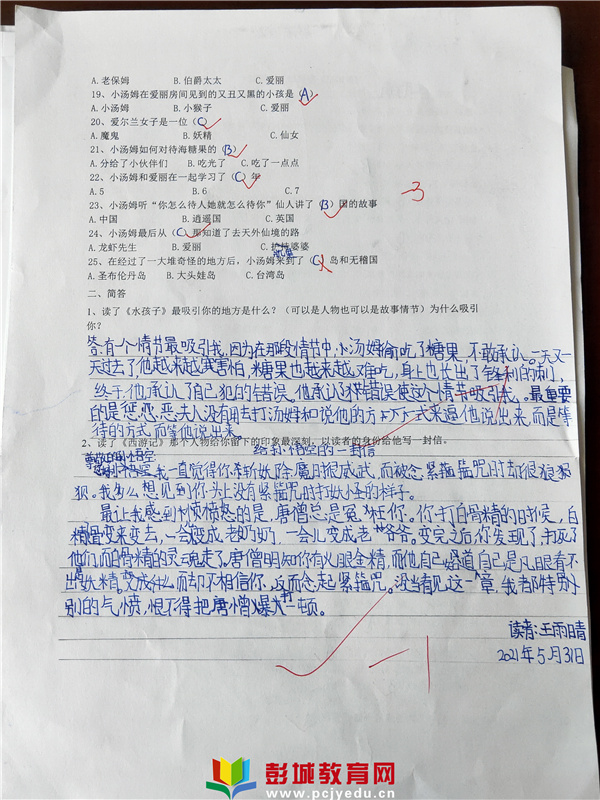 A.老保姆 B.伯爵太太 C.爱丽
19、小汤姆在爱丽房间见到的又丑又黑的小孩是（A）
A.小汤姆 B.小猴子 C.爱丽
20、爱尔兰女子是一位（C）
A.魔鬼 B.妖精 C.仙女
21、小汤姆如何对待海糖果的（B）
A.分给了小伙伴们 B.吃光了 C.吃了一点点
22、小汤姆和爱丽在一起学习了（C）年
A.5 B.6 C.7
-3
23、小汤姆听“你怎么待人她就怎么待你”仙人讲了（B）国的故事
A.中国 B.逍遥国 C.英国
24、小汤姆最后从（C）那知道了去天外仙境的路
A.龙虾先生 B.爱丽 C.护持婆婆
25、在经过了一大堆奇怪的地方后，小汤姆来到了（C）岛和无稽国
A.圣布伦丹岛 B.大头娃岛 C.台湾岛
二、简答
1、读了《水孩子》最吸引你的地方是什么？（可以是人物也可以是故事情节）为什么吸引
你？
答：有个情节最吸引我，因为在那段情节中，小汤姆偷吃了糖果，不敢承认。一天又一
天过去了他越来越害怕，糖果也越来越难吃，身上也长出了锋利的刺，
终于，他承认了自己犯的错误。他承认错误使这个情节吸引我。最重要
的是惩恶夫人没有用去打汤姆和说他的方式来逼他说出来，而是等
待的方式而等他说出来
2、读了《西游记》那个人物给你留下的印象最深刻，以读者的身份给他写一封信。
给孙悟空的一封信
尊敬的孙悟空
我一直觉得你斩妖除魔时很威武，而被念紧箍咒时却很狼
狈。我多么想见到你头上没有紧箍咒时打妖怪的样子。
最让我感到愤怒的是，唐僧总是冤枉你。你打白骨精的时候，白
骨精变来变去，一会变成老奶奶，一会儿变成老爷爷。变完之后你发现了，打死了
他们，而白骨精的灵魂走了。唐僧明知你有火眼金精，而他自己知道自己是凡眼看不
出妖精变成什么，而却不相信你，反而念起紧箍咒。没当看见这一章，我都特别
别的气愤，恨不得把唐僧爆打一顿。
读者：王雨晴
2021年5月31日
-1
彭城教育网
www.pcjyedu.cn